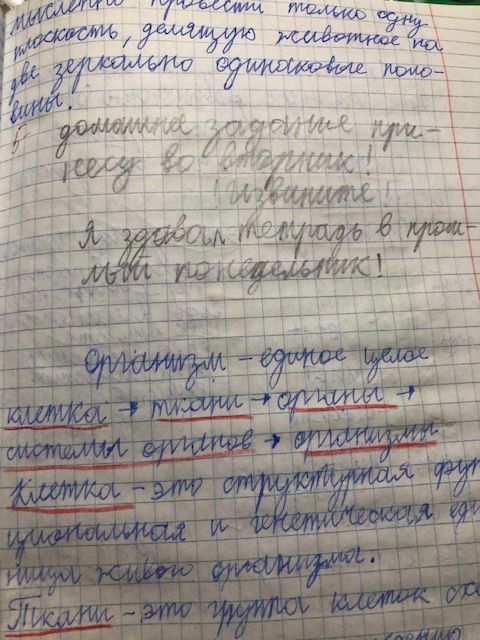 мысленно провести только одну
плоскость, делящую животное на
две зеркально одинаковые поло-
вины.
5
домашнее задание при-
несу во вторник!
!извините!
Я здавал тетрадь в прош-
лый понедельник!
организм – единое целое
клетка → ткани → органы →
системы органов → организмы
Клетка – это структурная фун
циональная и генетическая еди
ница живого организма.
Ткани – это группа клеток схо